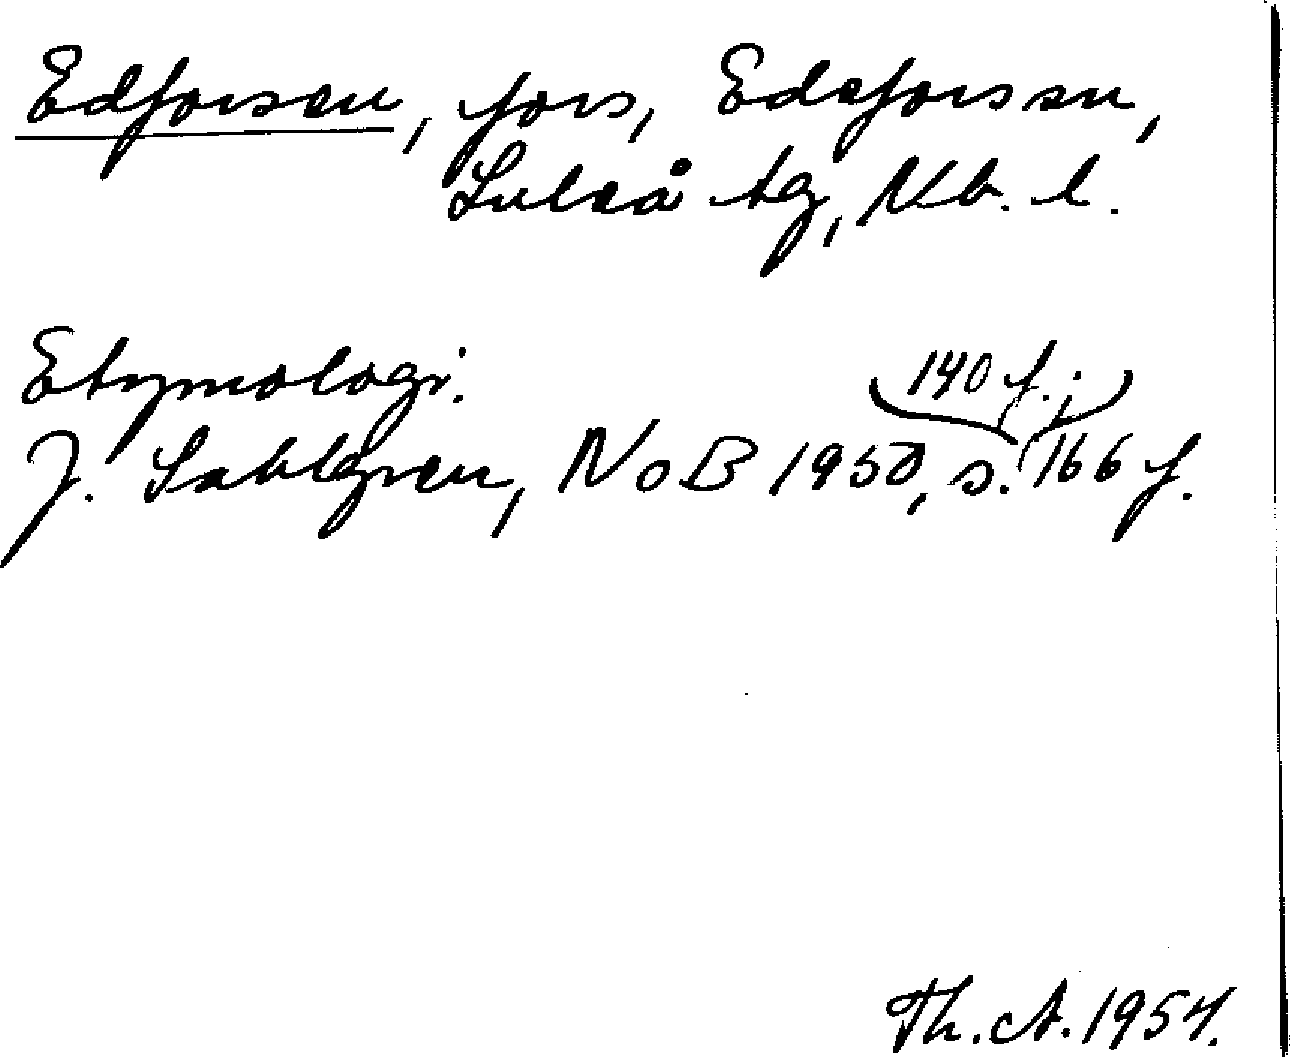 Edforsen, fors, Edeforsen,
Luleå tg, Nb. l.
Etymologi.
J. Sahlgren, NoB 1950, s. 140 f.; 166 f.
Th. A. 1954.